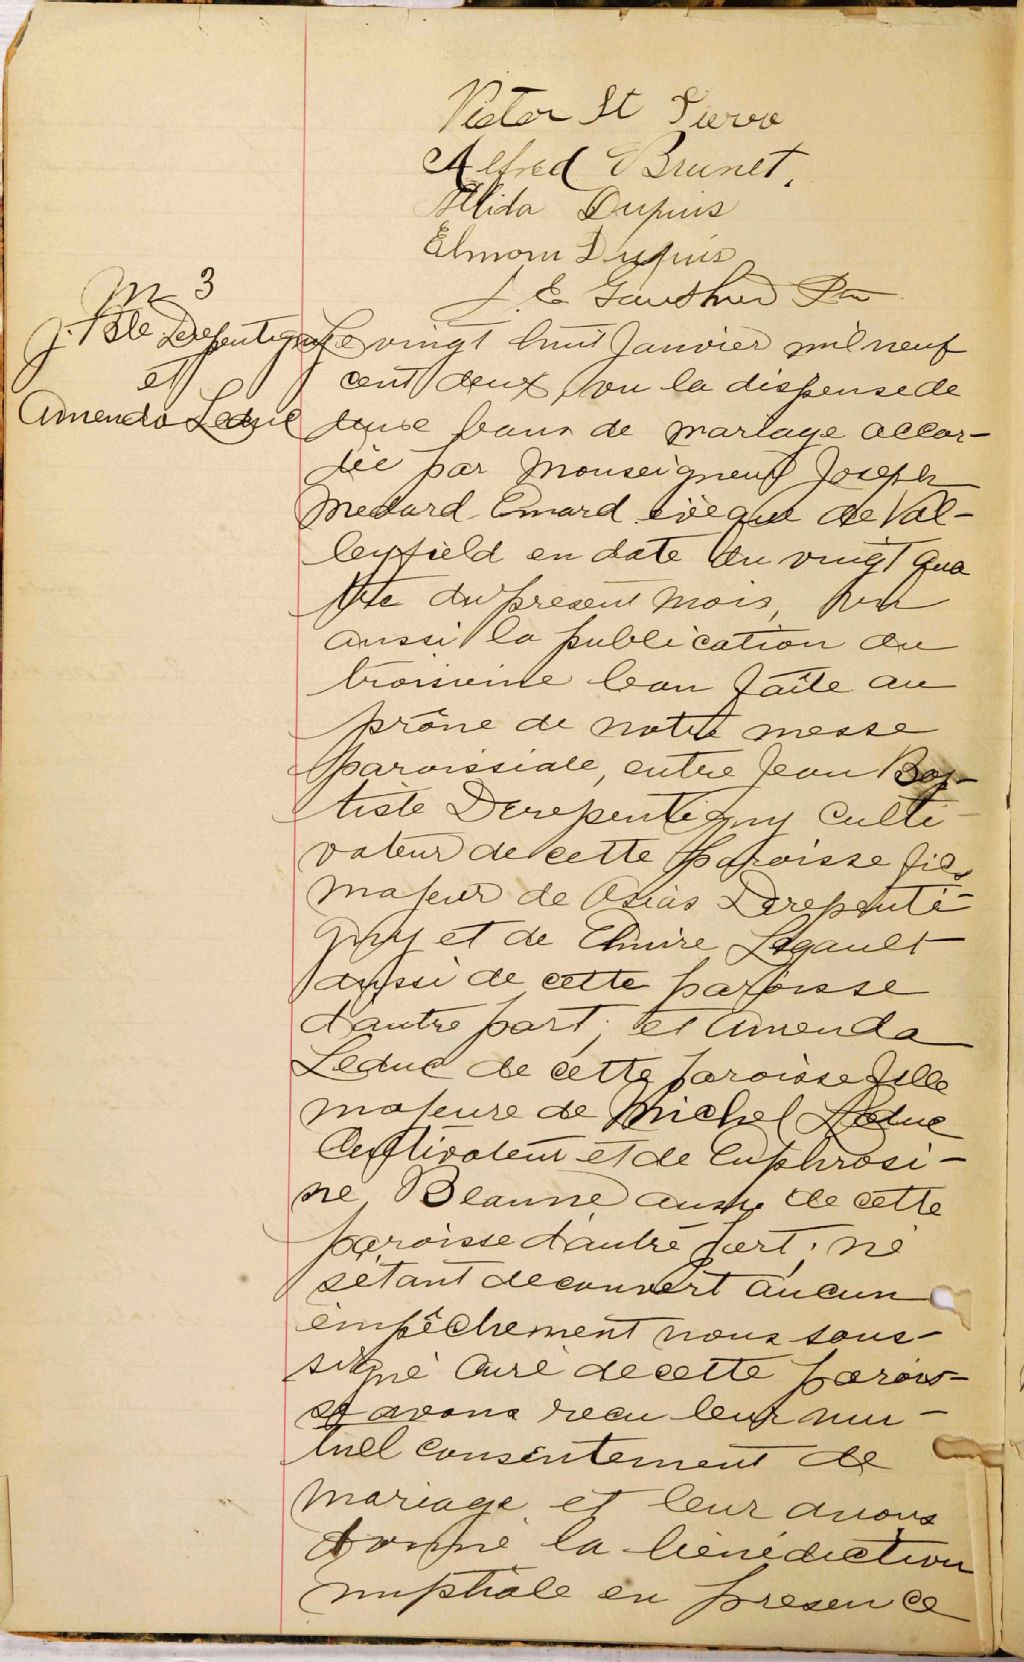 Victor St Pierre
Alfred Brunet.
Alida Dupuis
Elmom Dupuis
J. E. Gauthier Ptre
M 3
J. Bte Derepentigny
et
Amenda Leduc
Le vingt huit Janvier mil neuf
cent deux, vu la dispense de
deux bans de mariage accor-
dée par Monseigneur Joseph
Medard Emard évêque de Val-
leyfield en date du vingt qua
tre du present mois, vu
aussi la publication du
troisieme ban faîte au
prône de notre messe
paroissiale, entre Jean Bap-
tiste Derepentigny culti-
vateur de cette paroisse fils
majeur de Osias Derepenti-
gny et de Elmire Legault
aussi de cette paroisse
d'autre part; et Amenda
Leduc de cette paroisse fille
majeure de Michel Leduc
Cultivateur et de Euphrosi-
ne Beaune aussi de cette
paroisse d'autre part; ne
s'étant decouvert aucun
empêchement nous sous-
signé Curé de cette parois-
se avons recu leur mu-
tuel consentement de
mariage et leur avons
donné la bénédiction
nuptiale en presence